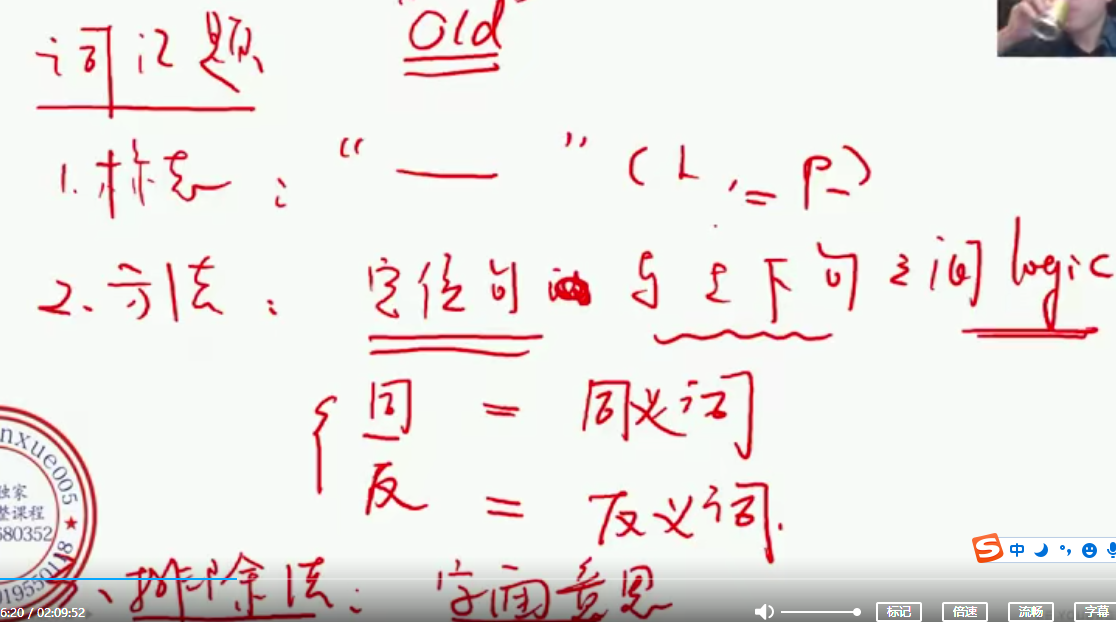 词汇题 "Old"
1. 标志：“ —— ” (L , = P_)
2. 方法：定位句 与上下句之间 logic
同 = 同义词
反 = 反义词.
、排除法：字面意思
nxue005
独家
整课程
680352
919550118
中
6:20 / 02:09:52
标记 倍速 流畅 字幕